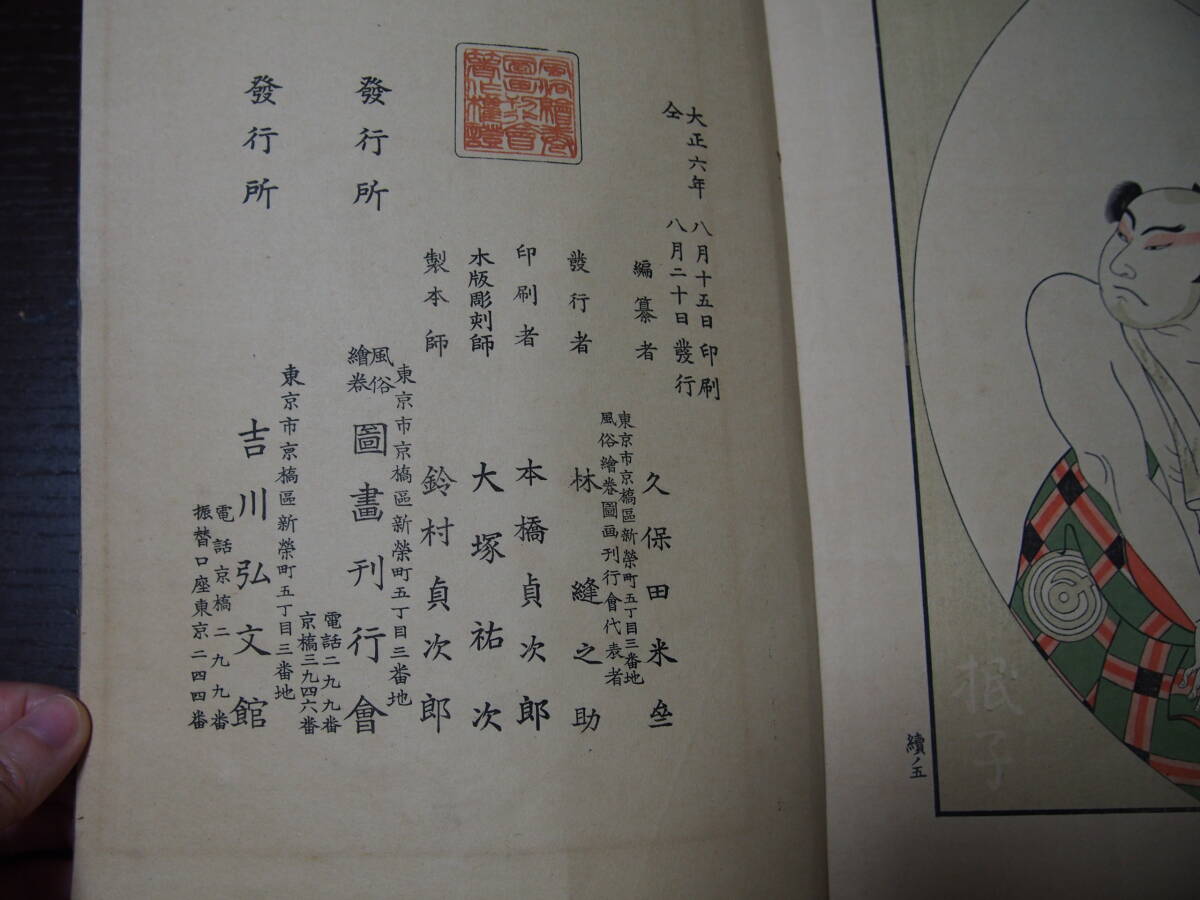 大正六年 八月十五日印刷
仝 八月二十日發行
編纂者 久保田米𠫱
東京市京橋區新榮町五丁目三番地
風俗繪卷圖画刊行會代表者
發行者 林縫之助
印刷者 本橋貞次郎
木版彫刻師 大塚祐次
製本師 鈴村貞次郎
東京市京橋區新榮町五丁目三番地
發行所 風俗繪卷圖畫刊行會
電話二九九番
京橋三九四六番
東京市京橋區新榮町五丁目三番地
發行所 吉川弘文館
電話京橋二九九番
振替口座東京二四四番
續ノ五